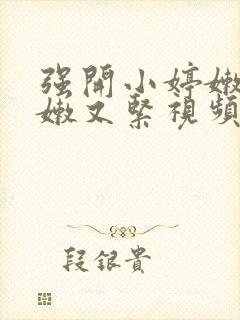 强開小婷嫩
嫩又緊視頻
段銀貴